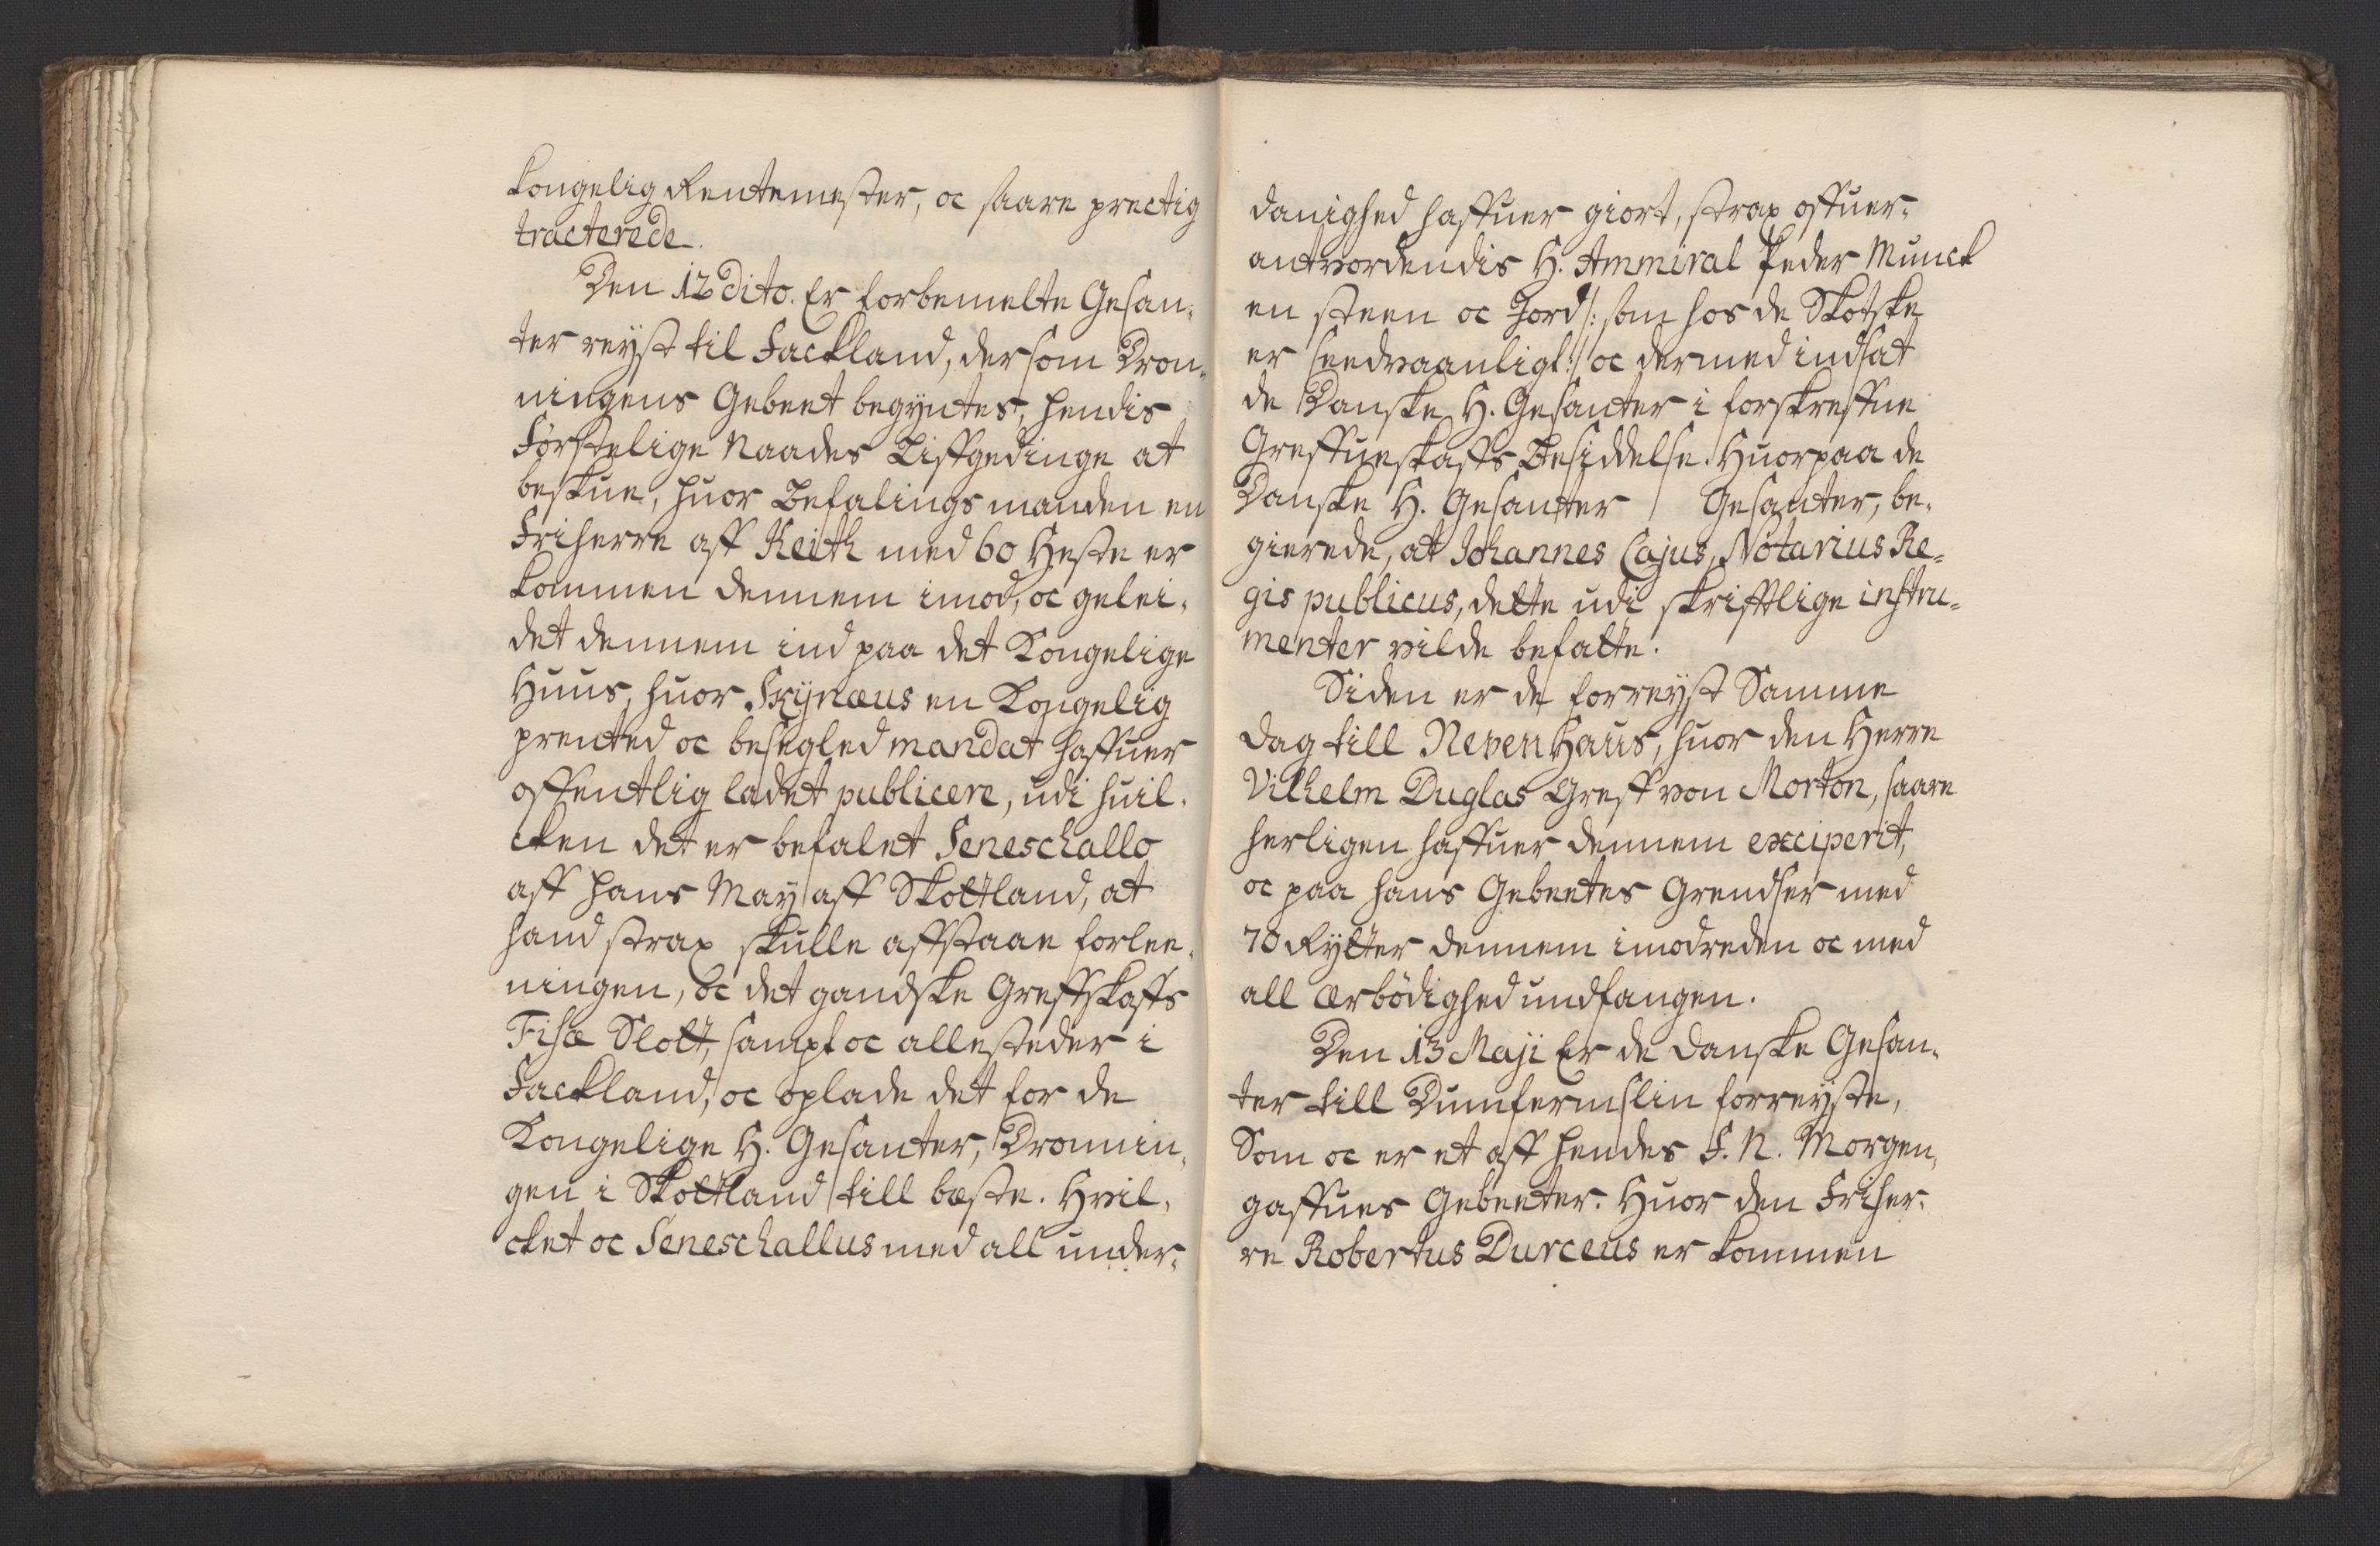 kongelig Rentemester, oc saare prectig
tracterede.
Den 12 dito. Er forbemelte Gesan-
ter reyst til Fackland, der som Dron-
ningens Gebeet begyntes, hendis
Førstelige Naades Liffgedinge at
beskue, huor Befalings manden en
Friherre aff Keith med 60 Heste er
kommen dennem imod, oc gelei-
det dennem ind paa det Kongelige
Huus, huor Skynæus en Kongelig
prented oc besegled mandat haffuer
offentlig ladet publicere, udi huil-
cken det er befalet Seneschallo
aff Hans May: aff Skottland, at
hand strax skulle affstaae forlee-
ningen, oc det gandske Greffskaffs
Fisæ Slott, sampt oc allesteder i
Fackland, oc oplade det for de
Kongelige H. Gesanter, Dronnin-
gen i Skottland till bæste. Hvil-
cket oc Seneschallus med all under-
danighed haffuer giort, strax offuer-
antvordendis H. Ammiral Peder Munck
en steen oc Jord /: som hos de Skotske
er seedvaanligt :/ oc dermed indsat
de Danske H. Gesanter i forskreffne
Greffueskaffs Besiddelse. Huorpaa de
Danske H. Gesanter / Gesanter, be-
gierede, at Johannes Cajus, Notarius Re-
gis publicus, dette udi skrifftlige instru-
menter vilde befatte.
Siden er de forreyst Samme
Dag till Neven Haus, huor den Herre
Vilhelm Duglas Greff von Morton, saare
herligen haffuer dennem exciperit,
oc paa hans Gebeetes Grendser med
70 Rytter dennem imodreden oc med
all Ærbödighed undfangen.
Den 13 Maji Er de Danske Gesan-
ter till Dumfermslin forreyste,
Som oc er et aff hendes F. N. Morgen-
gaffues Gebeeter. Huor den Friher-
re Robertus Durceus er kommen